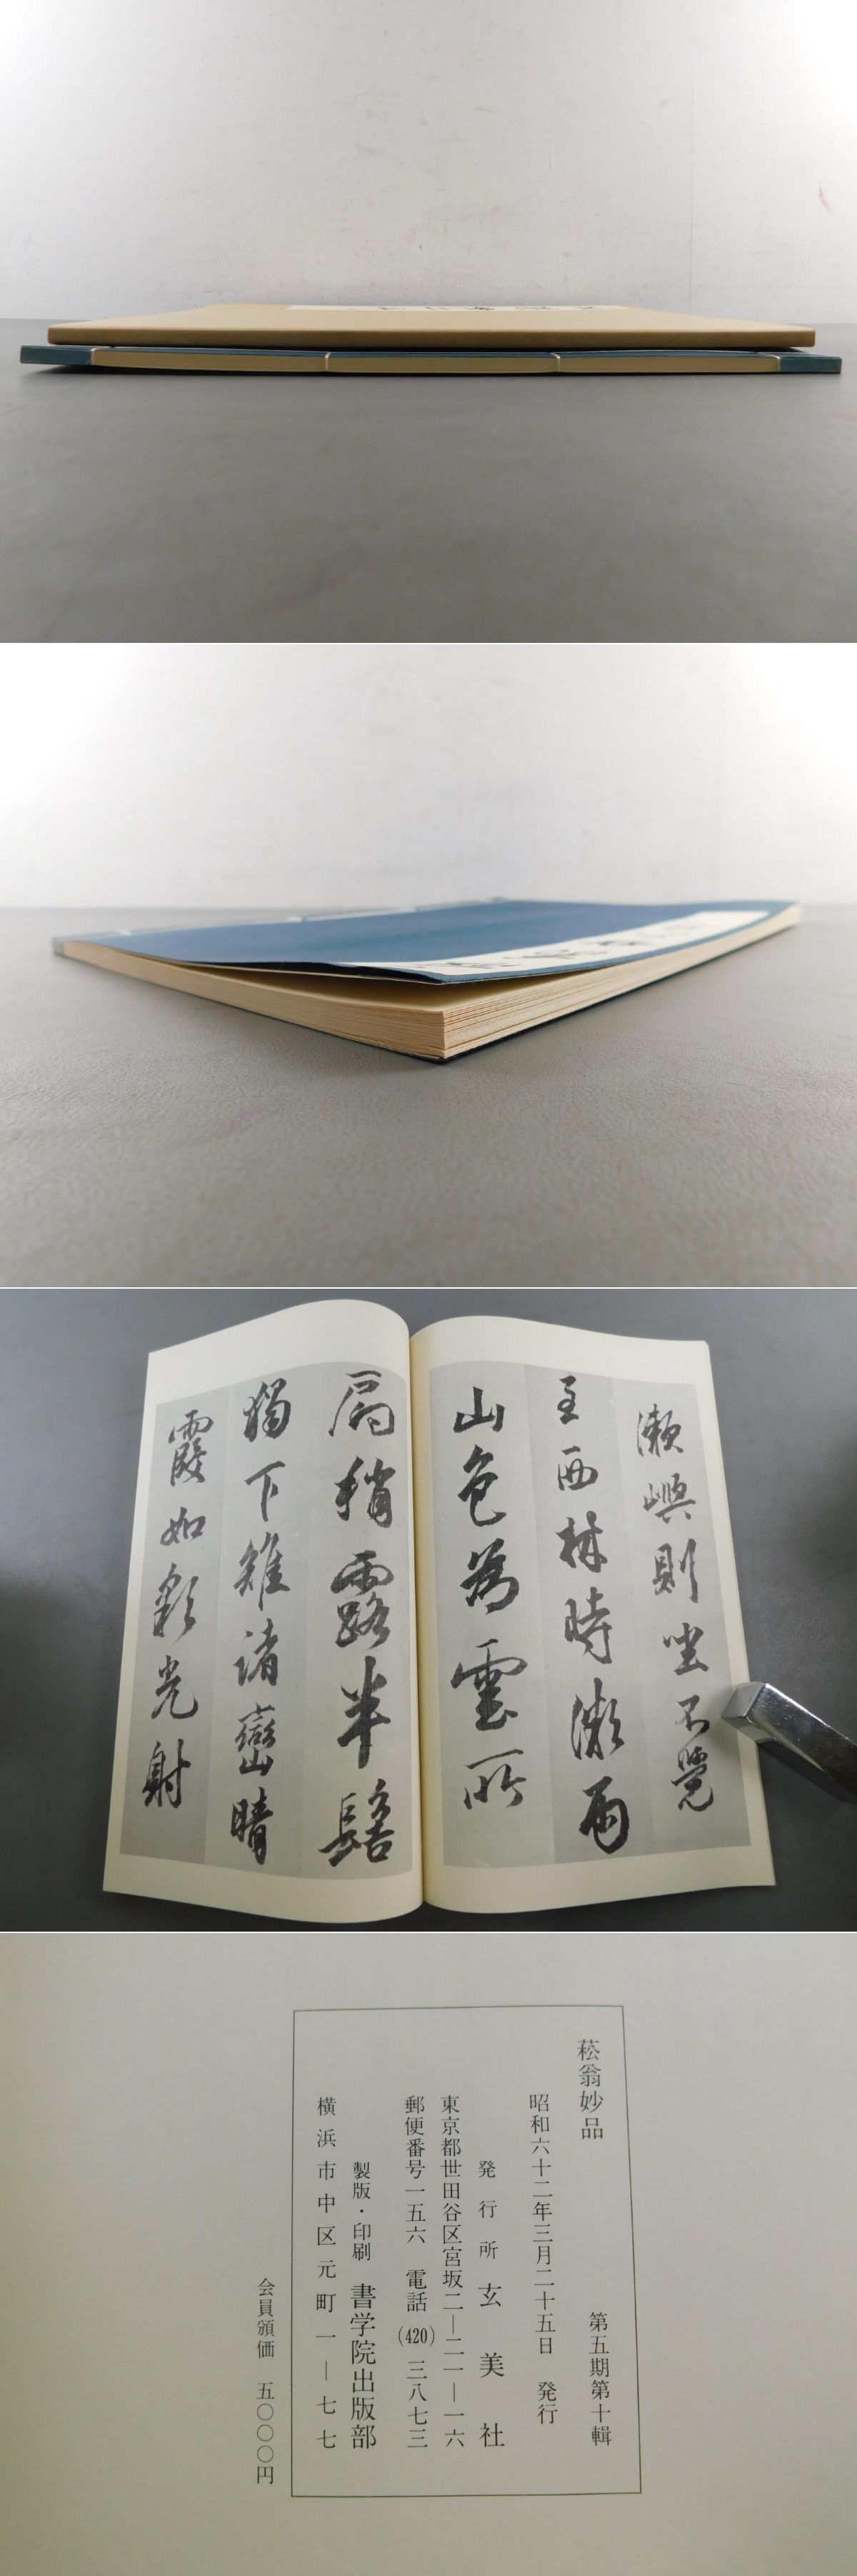 瀬嶼則坐不覺
至西林時微雨
山色為雲所
扃稍露半髻
獨下雉諸巒晴
霞如彩光射
菘翁妙品
第五期第十輯
昭和六十二年三月二十五日 発行
発行所 玄美社
東京都世田谷区宮坂二—二一—一六
郵便番号一五六 電話(420)三八七三
製版・印刷 書学院出版部
横浜市中区元町一—七七
会員頒価 五〇〇〇円